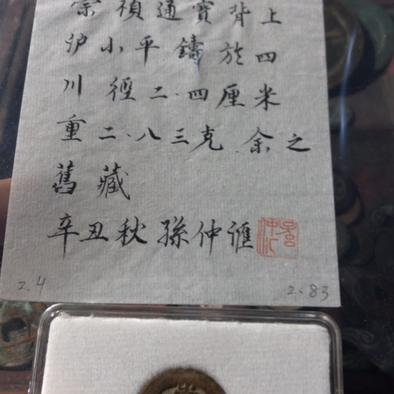 崇禎通寳背上
沪小平鑄於四
川徑二.四厘米
重二.八三克余之
舊藏
辛丑秋孫仲誰
2.4
2.83